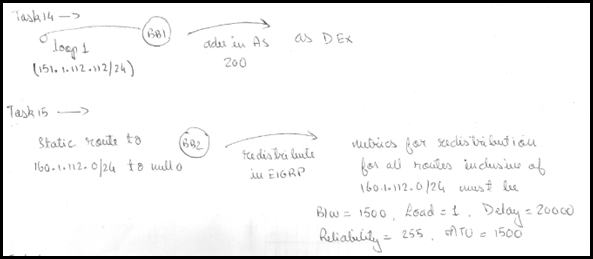 Task14 →
BB1
adv in AS
200
as DEX
loop 1
(151.1.112.112/24)
Task15 →
Static route to
160.1.112.0/24 to null 0
BB2
redistribute
in EIGRP
metrics for redistribution
for all routes inclusive of
160.1.112.0/24 must be
B/W = 1500, Load = 1, Delay = 20000
Reliability = 255, MTU = 1500